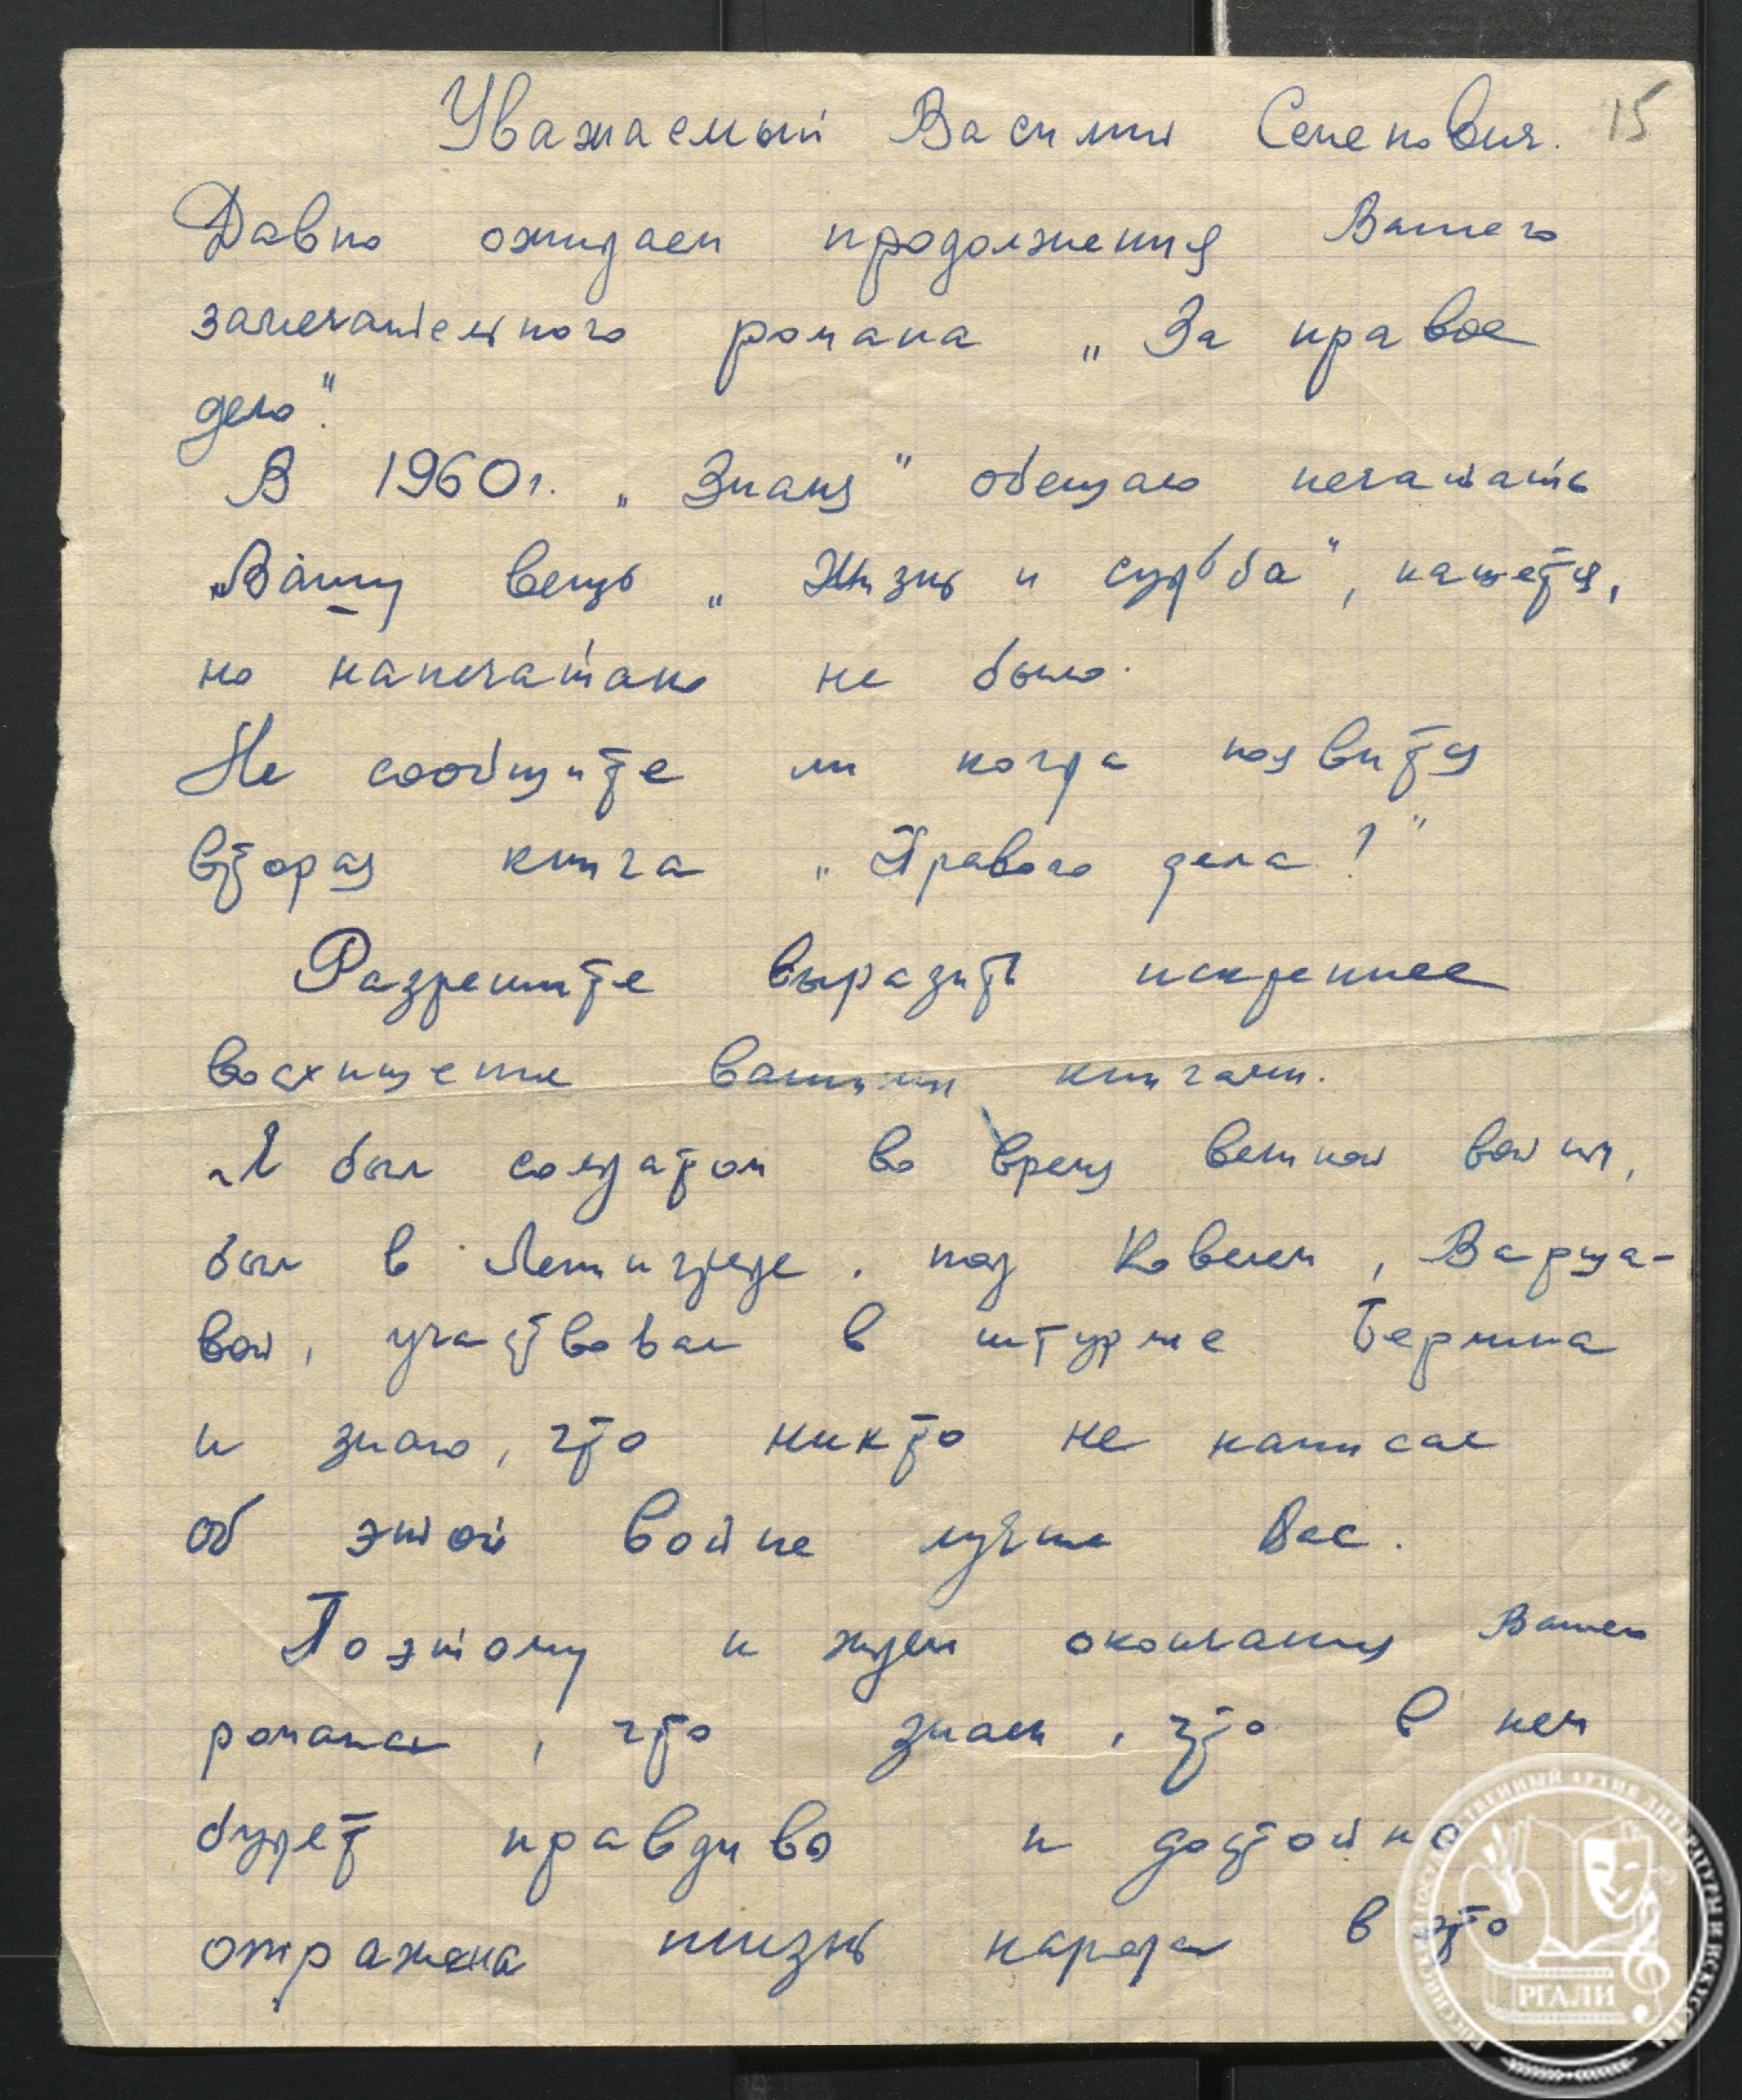 15
Уважаемый Василий Семенович.
Давно ожидаем продолжения Вашего
замечательного романа „За правое
дело".
В 1960 г. „Знамя" обещало печатать
Вашу вещь „Жизнь и судьба", кажется,
но напечатано не было.
Не сообщите ли когда появится
вторая книга „Правого дела?"
Разрешите выразить искреннее
восхищение вашими книгами.
Я был солдатом во время великой войны,
был в Ленинграде, под Ковелем, Варша-
вой, участвовал в штурме Берлина
и знаю, что никто не написал
об этой войне лучше Вас.
Поэтому и ждем окончания Вашего
романа, что знаем, что в нем
будет правдиво и достойно
отражена жизнь народа в это
РОССИЙСКИЙ ГОСУДАРСТВЕННЫЙ АРХИВ ЛИТЕРАТУРЫ И ИСКУССТВА
РГАЛИ